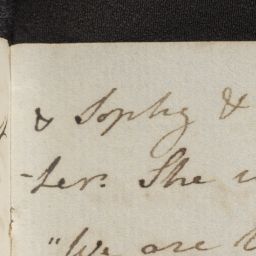 & Sophy &
-ter. She
"We are